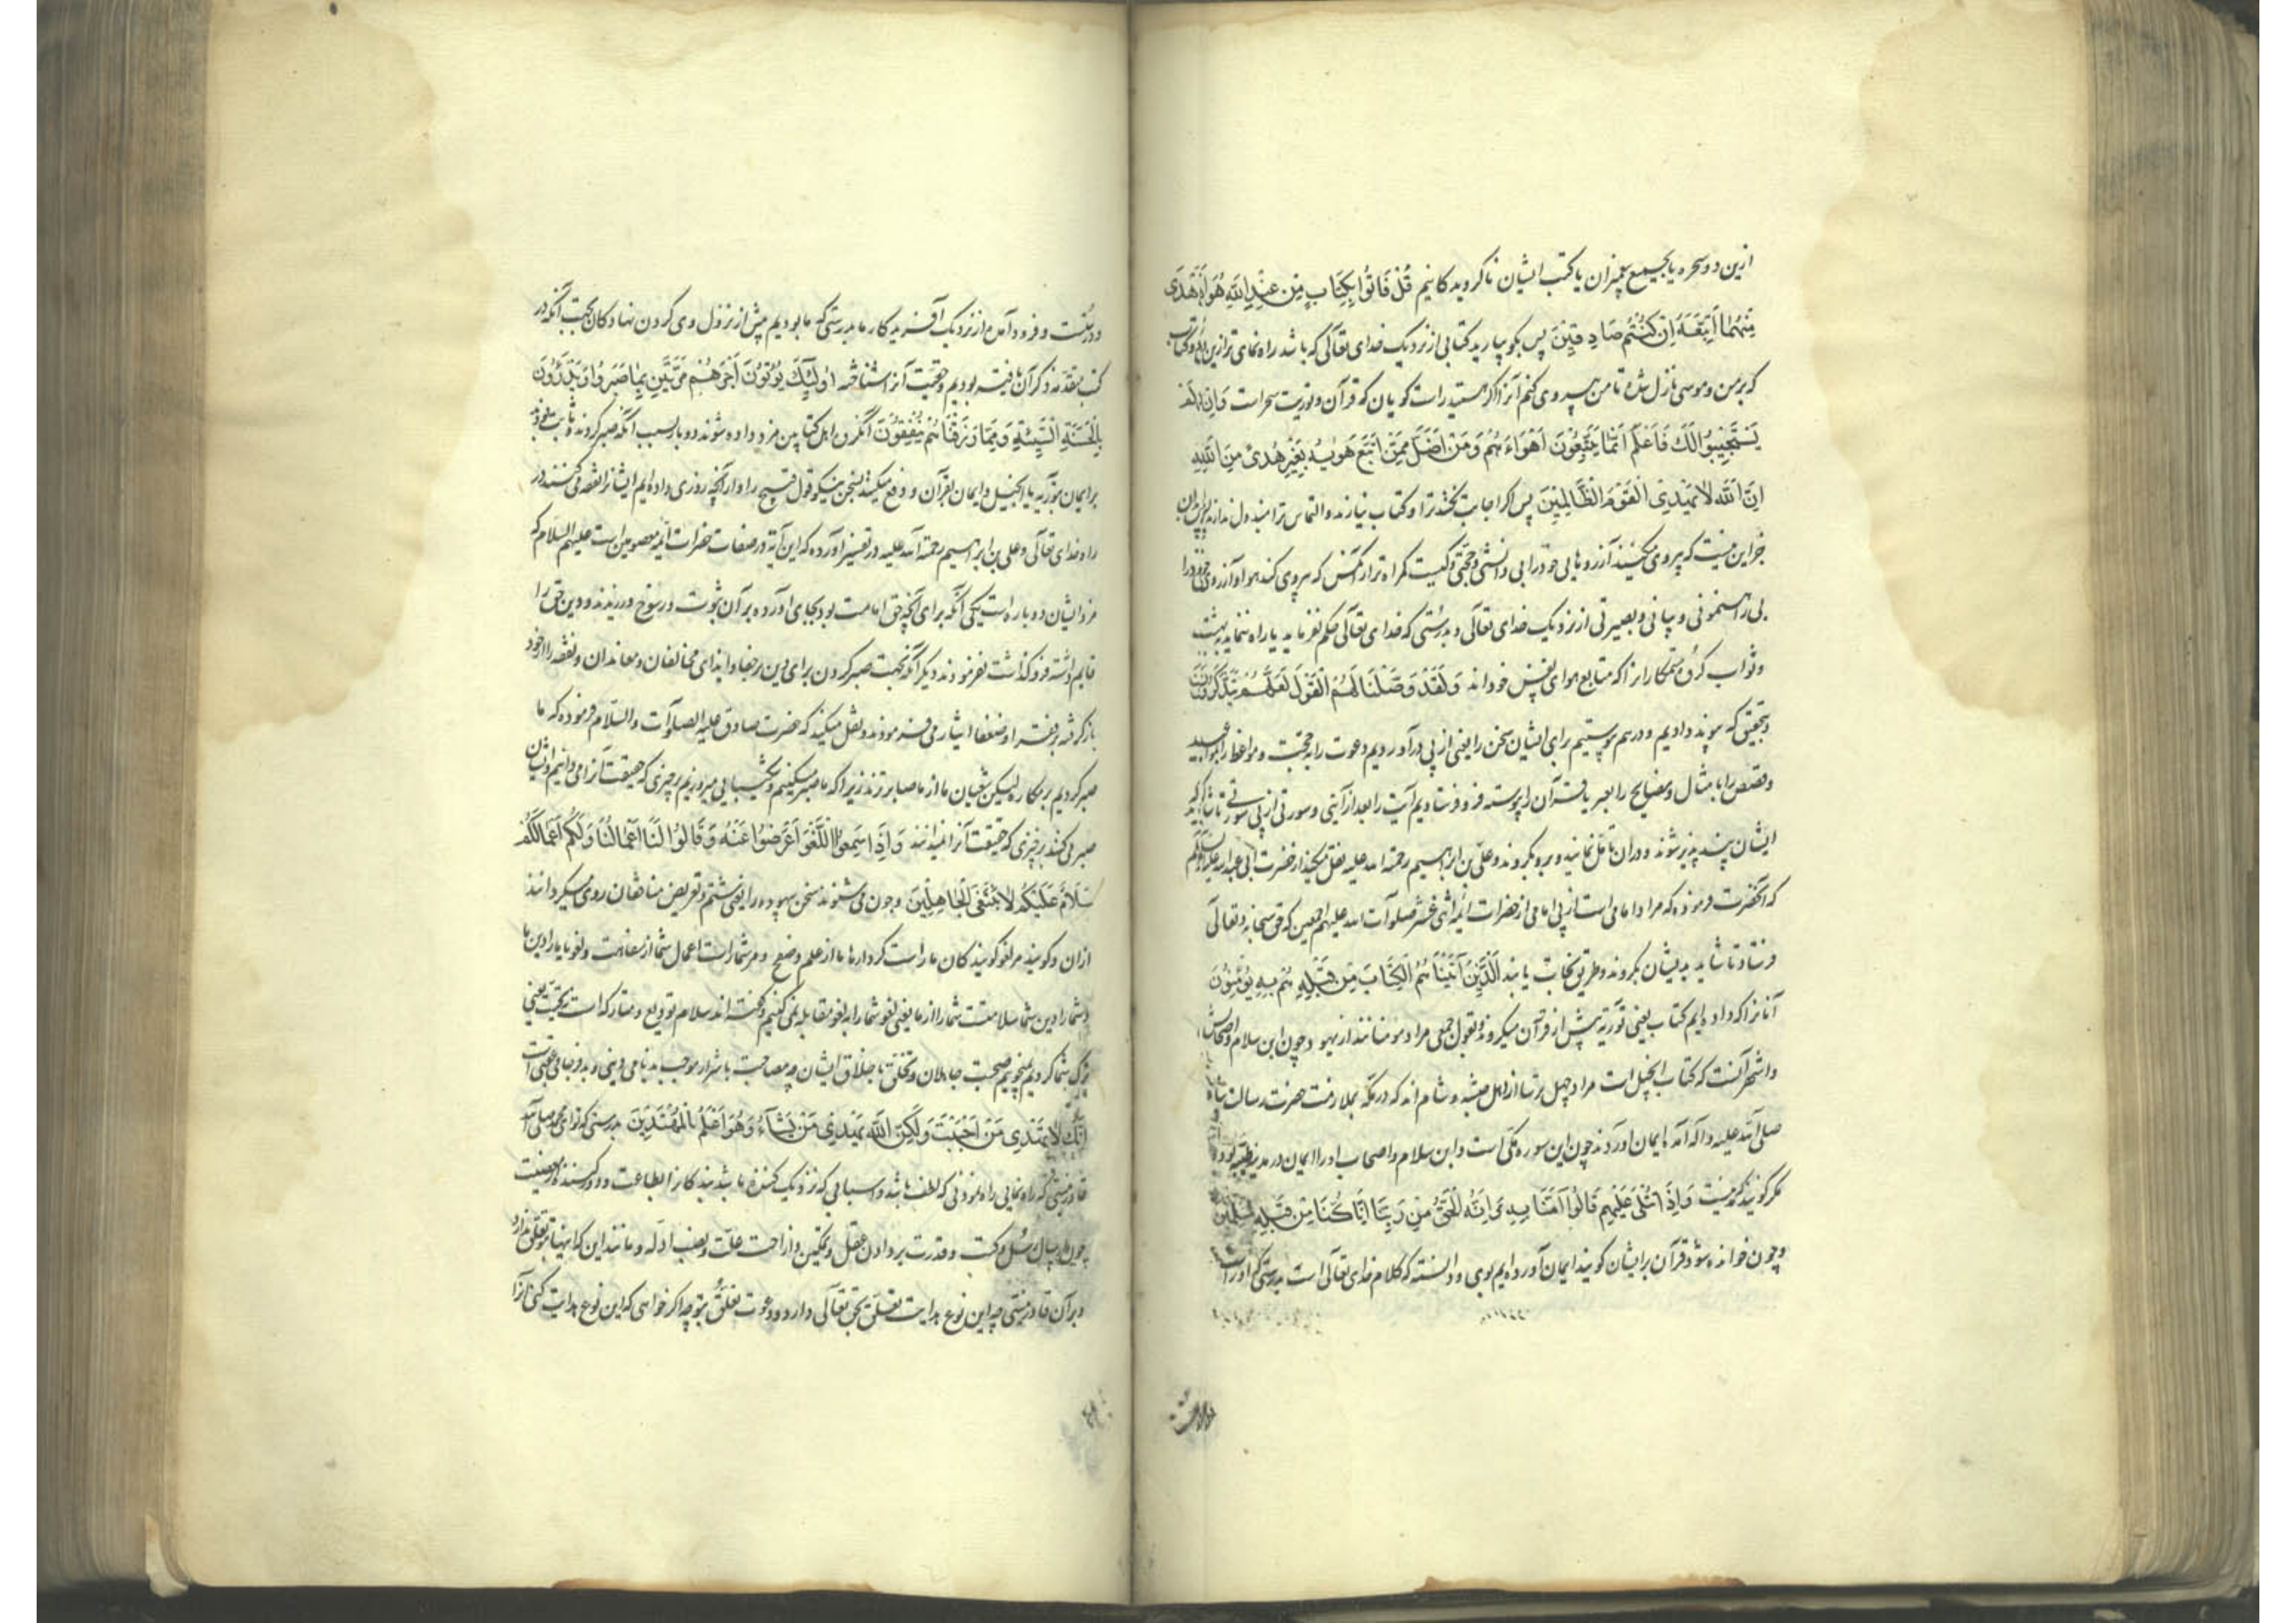 ازین دو سحره یا بجمیع پیغمبران یا کتب ایشان ناکرویدکانیم قُلْ فَأْتُوا بِكِتَابٍ مِنْ عِنْدِ اللَّهِ هُوَ أَهْدَى
مِنْهُمَا أَتَّبِعْهُ إِنْ كُنْتُمْ صَادِقِينَ پس بکو بیارید کتابی از نزدیک خدای تعالی که باشد راه نمای تر ازین کتاب
که بر من و موسی نازل شده تا من پیروی کنم آنرا اکر هستید راست کویان که قرآن و توریت سحر است وَإِنْ لَمْ
يَسْتَجِيبُوا لَكَ فَاعْلَمْ أَنَّمَا يَتَّبِعُونَ أَهْوَاءَهُمْ وَمَنْ أَضَلُّ مِمَّنِ اتَّبَعَ هَوَيهُ بِغَيْرِ هُدًى مِنَ اللَّهِ
إِنَّ اللَّهَ لَا يَهْدِي الْقَوْمَ الظَّالِمِينَ پس اکر اجابت نکنند ترا و کتاب نیارند و التماس ترا مبذول ندارند پس بدان
جز این نیست که پیروی میکنند آرزوهای خود را بی دانشی و حجتی و کیست کمراه تر از آنکس که پیروی کند هوا و آرزوی خود را
بی راهنمونی و بیانی و بصیرتی از نزدیک خدای تعالی و بدرستی که خدای تعالی حکم نفرماید یا راه ننماید به بهشت
و ثواب کروه ستمکاران را که متابع هوای نفس خوداند وَلَقَدْ وَصَّلْنَا لَهُمُ الْقَوْلَ لَعَلَّهُمْ يَتَذَكَّرُونَ
و بتحقیق که پیوند دادیم و در هم پیوستیم برای ایشان سخن را یعنی از پی درآوردیم دعوت را به حجت و مواعظ را بمواعید
و قصص را بامثال و نصایح را بعبر یا قرآن را پیوسته فرو فرستادیم آیت را بعد از آیتی و سورتی از پی سورتی تا شاید که
ایشان پند پذیر شوند و دران تامل نمایند و برو بکروند و علی بن ابراهیم رحمة الله علیه نقل میکند از حضرت ابی عبدالله علیه السلام
که آنحضرت فرموده که مراد امامی است از پی امامی از حضرات ائمه اثنی عشر صلوات الله علیهم اجمعین که حق سبحانه و تعالی
فرستاد تا شاید بدیشان بکروند و طریق نجات یابند الَّذِينَ آتَيْنَاهُمُ الْكِتَابَ مِنْ قَبْلِهِ هُمْ بِهِ يُؤْمِنُونَ
آنانرا که داده ایم کتاب یعنی توریة پیش از قرآن میکروند و بقول جمعی مراد مومنانند از یهود چون ابن سلام و اصحابش
و اشهر آنست که کتاب انجیل است مراد چهل ترسا از اهل حبشه و شام اند که در مکه بملازمت حضرت رسالت پناه
صلی الله علیه و آله آمده ایمان آوردند چون این سوره مکی است و ابن سلام و اصحاب او را ایمان در مدینه طیبه بود
مکر کویند وَإِذَا يُتْلَى عَلَيْهِمْ قَالُوا آمَنَّا بِهِ إِنَّهُ الْحَقُّ مِنْ رَبِّنَا إِنَّا كُنَّا مِنْ قَبْلِهِ مُسْلِمِينَ
و چون خوانده شود قرآن بر ایشان کویند ایمان آورده ایم بوی و دانسته که کلام خدای تعالی است بدرستی که او راست
و درست و فرود آمده از نزدیک آفریدکار ما بدرستی که ما بودیم پیش از نزول وی کردن نهادکان بجهت آنکه در
کتب متقدمه ذکر آن یافته بودیم و حقیت آنرا شناخته أُولَئِكَ يُؤْتَوْنَ أَجْرَهُمْ مَرَّتَيْنِ بِمَا صَبَرُوا وَيَدْرَؤُنَ
بِالْحَسَنَةِ السَّيِّئَةَ وَمِمَّا رَزَقْنَاهُمْ يُنْفِقُونَ آنکروه اهل کتابین مزد داده شوند دوبار بسبب آنکه صبر کردند و ثابت بودند
بر ایمان بتوریة یا انجیل و ایمان بقرآن و دفع میکنند بسخن نیکو قول قبیح را و از آنچه روزی داده ایم ایشانرا نفقه میکنند در
راه خدای تعالی و علی بن ابراهیم رحمة الله علیه در تفسیر آورده که این آیة در صفات حضرات ائمه معصومین است علیهم السلام که
مزد ایشان دوباره است یکی آنکه برای آنچه حق امامت بود بجای آورده بر آن ثبوت و رسوخ ورزیدند و دین حق را
قایم داشته فرو کذاشت نفرمودند دیکر آنکه بجهت صبر کردن برای دین بر جفا و ایذای مخالفان و معاندان و نفقه را از خود
باز کرفته بر فقرا و ضعفا ایثار می فرمودند و نقل میکنند که حضرت صادق علیه الصلوات والسلام فرموده که ما
صبر کردیم بر مکاره لیکن شیعیان ما از ما صابرترند زیرا که ما صبر میکنیم و شکیبایی میورزیم بر چیزی که حقیقت آنرا می دانیم و ایشان
صبر می کنند بر چیزی که حقیقت آنرا نمیدانند وَإِذَا سَمِعُوا اللَّغْوَ أَعْرَضُوا عَنْهُ وَقَالُوا لَنَا أَعْمَالُنَا وَلَكُمْ أَعْمَالُكُمْ
سَلَامٌ عَلَيْكُمْ لَا نَبْتَغِي الْجَاهِلِينَ و چون می شنوند سخن بیهوده را یعنی شتم و تعریض منافقان روی میکردانند
ازان و کویند مر لغو کویندکان ما راست کردارهای ما از علم و صفح و مر شما راست اعمال شما از سفاهت و لغو یا ما را دین ما
و شما را دین شما سلامت شما را از ما یعنی لغو شما را به لغو مقابله نمی کنیم و کفته اند سلام تودیع و متارکه است نه تحیت یعنی
ترک شما کردیم نمیجوییم صحبت جاهلان و تخلق باخلاق ایشان چه مصاحبت با شرار موجب بدنامی دینی و بدفرجامی عقبی است
إِنَّكَ لَا تَهْدِي مَنْ أَحْبَبْتَ وَلَكِنَّ اللَّهَ يَهْدِي مَنْ يَشَاءُ وَهُوَ أَعْلَمُ بِالْمُهْتَدِينَ بدرستی که تو ای محمد صلی الله
قادر نیستی که راه نمایی راه نمودنی که لطف باشد و اسبابی که نزدیک کننده باشد بندکانرا بطاعت و دور کننده از معصیت
چون ارسال رسل و کتب و قدرت بر دادن عقل و تمکین و ازاحت علت و نصب ادله و مانند این که اینها بتو تعلق ندارد
و بر آن قادر نیستی چه این نوع هدایت تعلق بحق تعالی دارد و دعوت تعلق بتو چه اکر خواهی که این نوع هدایت کنی آنرا